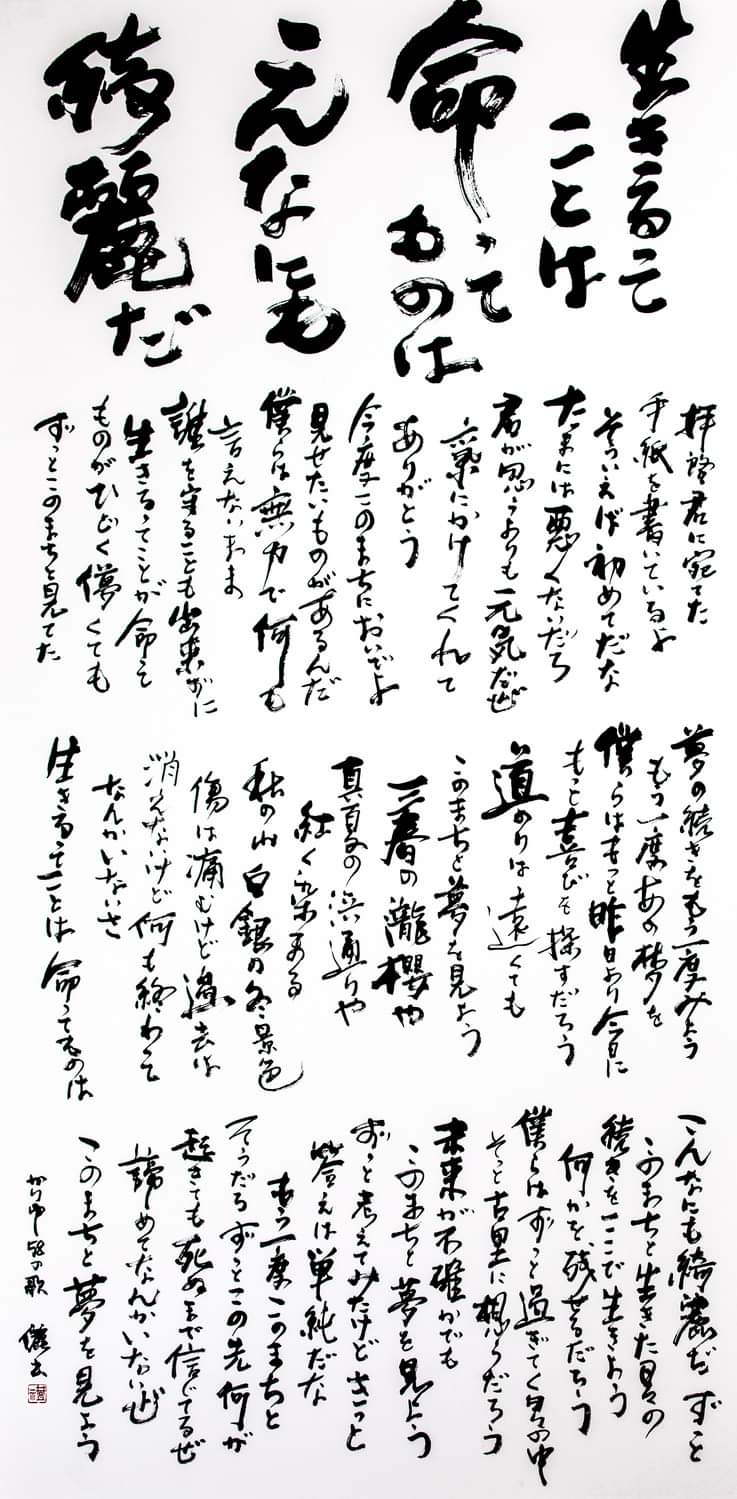 生きるって
ことは
命って
ものは
こんなにも
綺麗だ
拝啓君に宛てた
手紙を書いているよ
そういえば初めてだな
たまには悪くないだろ
君が思うよりも元気だぜ
気にかけてくれて
ありがとう
今度このまちにおいでよ
見せたいものがあるんだ
僕らは無力で何も
言えないまま
誰を守ることも出来ずに
生きるってことが命って
ものがひどく儚くても
ずっとこのまちを見てた
夢の続きをもう一度みよう
もう一度あの夢を
僕らはもっと昨日より今日に
もっと喜びを探すだろう
道のりは遠くても
このまちと夢を見よう
三春の瀧櫻や
真夏の浜通りや
紅く染まる
秋の山白銀の冬景色
傷は痛むけど過去は
消えないけど何も終わって
なんかいないさ
生きるってことは命ってものは
こんなにも綺麗だずっと
このまちと生きた日々の
続きをここで生きよう
何かを残せるだろう
僕らはずっと過ぎてく日々の中
そっと古里に想うだろう
未来が不確かでも
このまちと夢を見よう
ずっと考えてみたけどきっと
答えは単純だな
もう一度このまちと
そうだろずっとこの先何が
起きても死ぬまで信じてるぜ
諦めてなんかいないぜ
このまちと夢を見よう
かりゆし58の歌